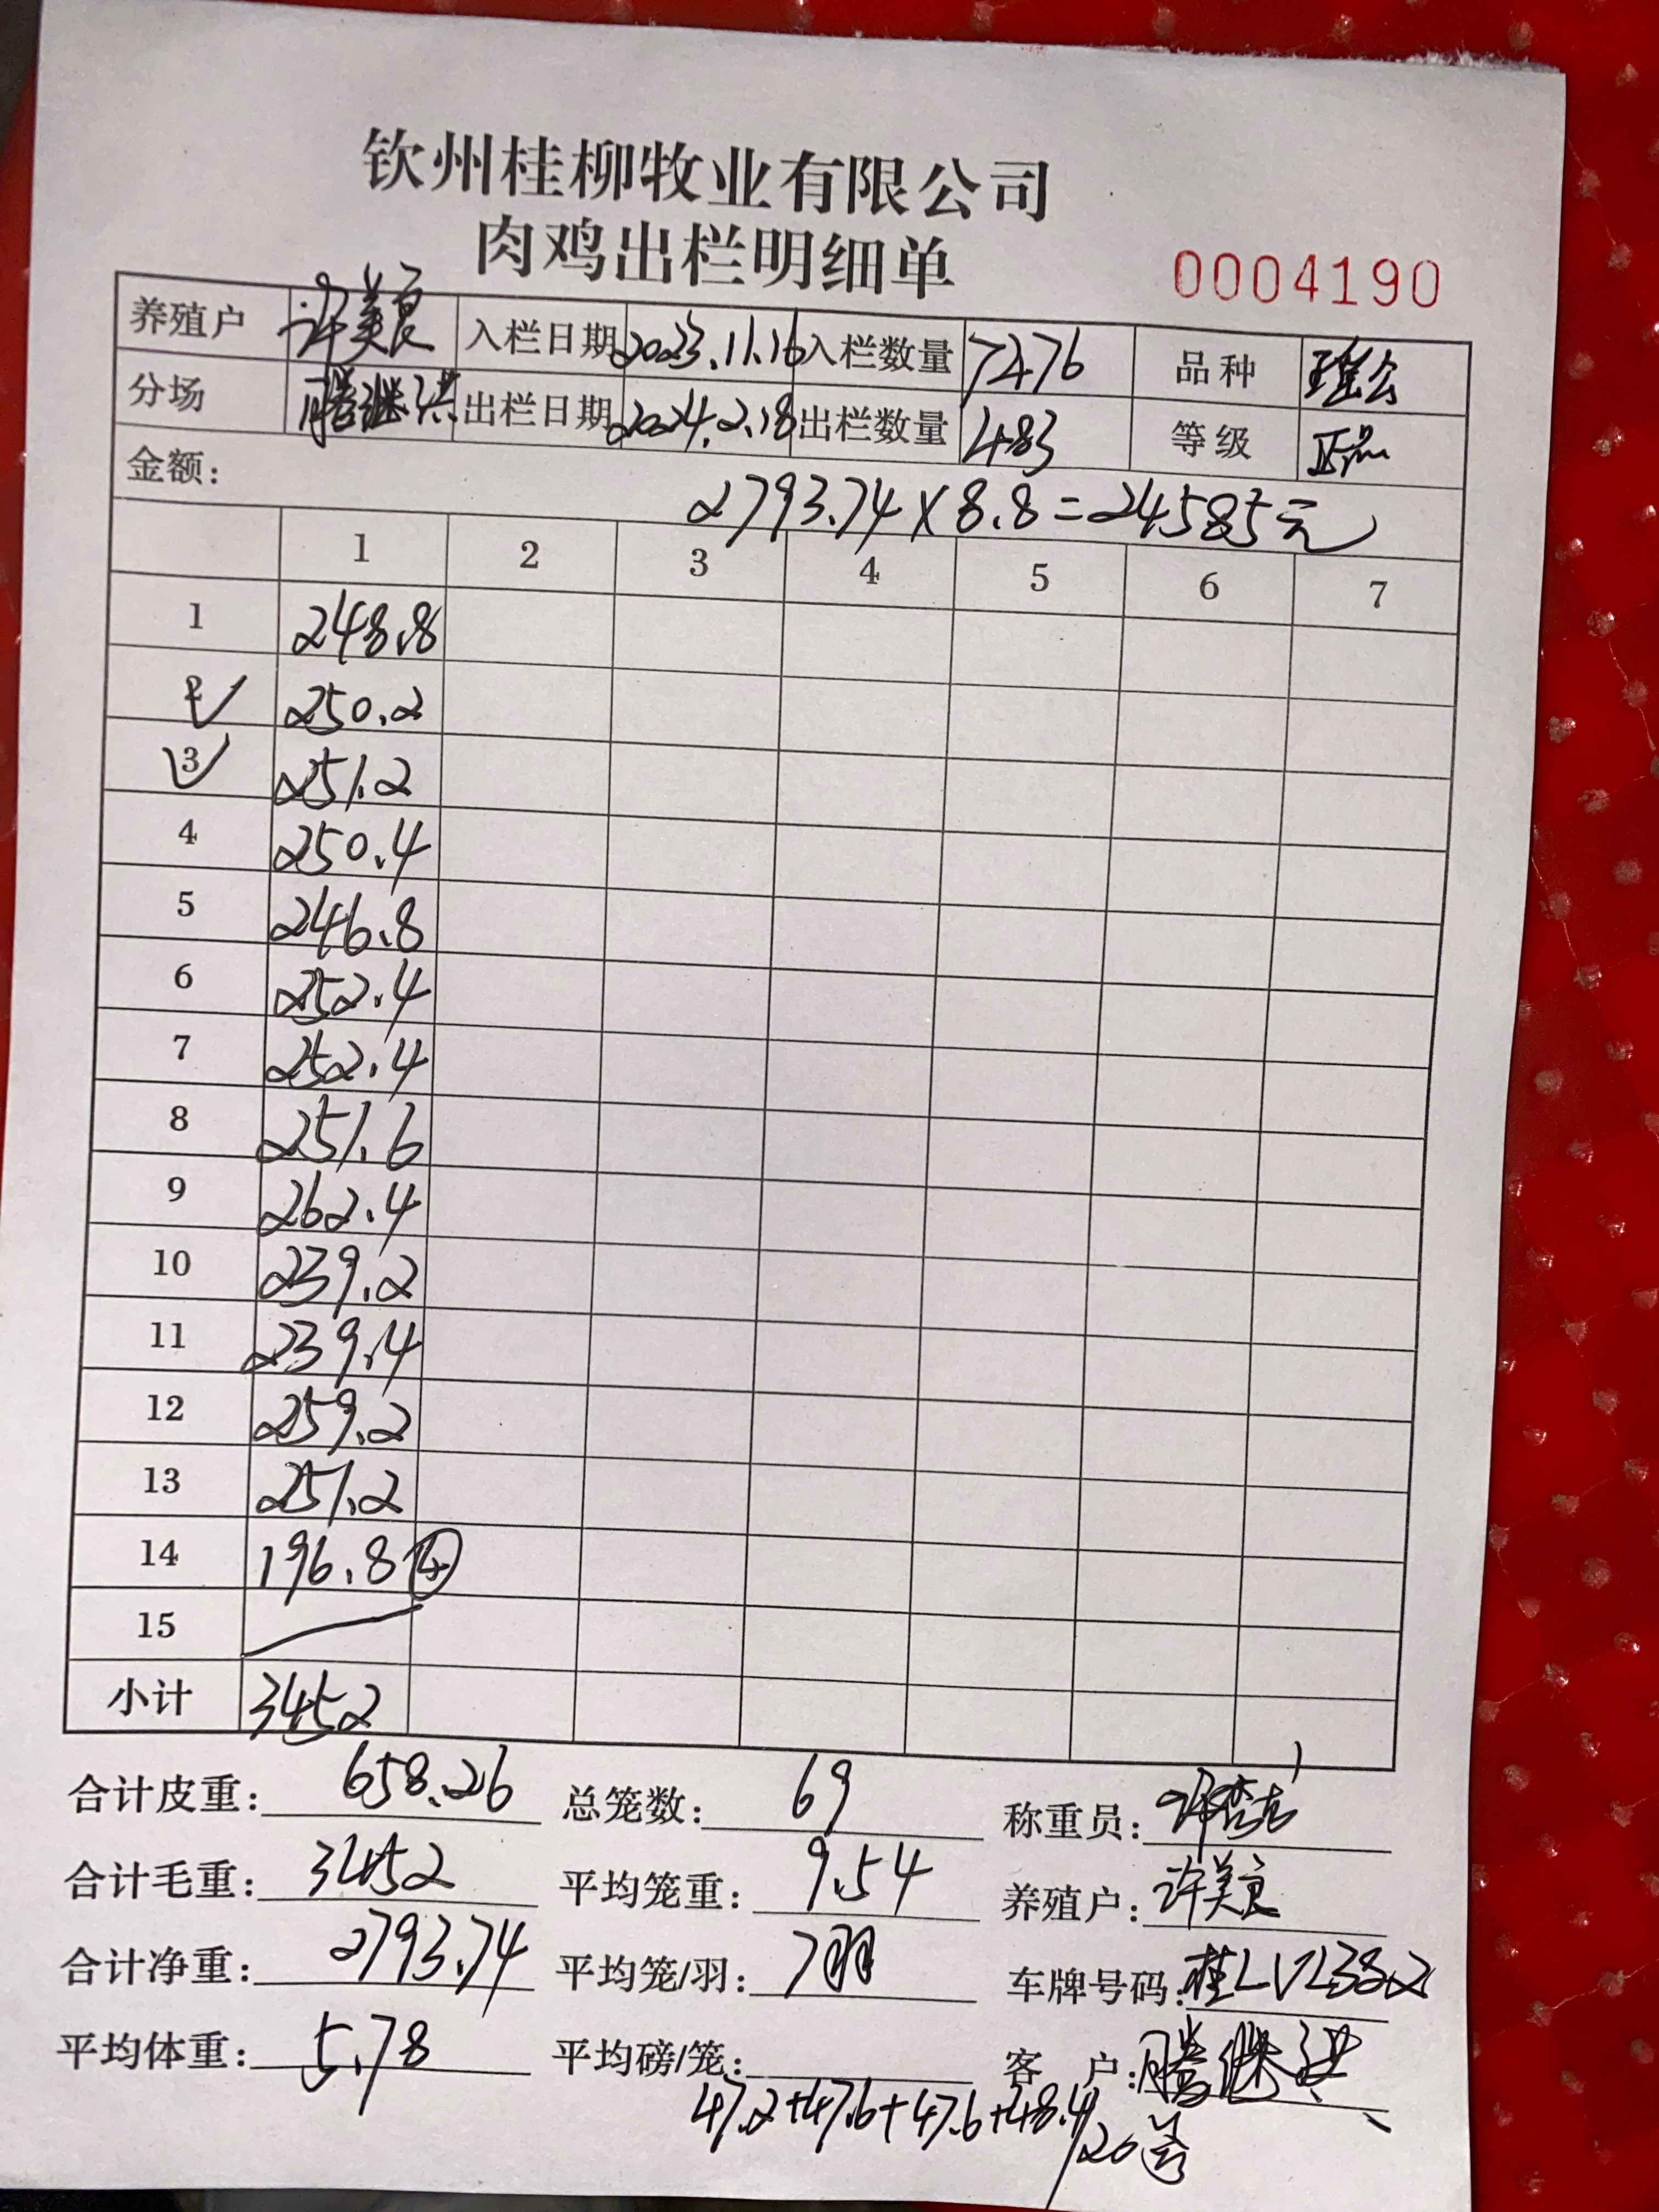 钦州桂柳牧业有限公司
肉鸡出栏明细单
0004190
养殖户 许美良 入栏日期 2023.11.16 入栏数量 7276 品种 瑶公
分场 滕继洪 出栏日期 2024.2.18 出栏数量 483 等级 正品
金额: 2793.74×8.8=24585元
1 2 3 4 5 6 7
1 248.8
2 250.2
3 251.2
4 250.4
5 246.8
6 252.4
7 252.4
8 251.6
9 262.4
10 239.2
11 239.4
12 259.2
13 251.2
14 196.8 ④
15
小计 3452
合计皮重: 658.26 总笼数: 69 称重员:
合计毛重: 3452 平均笼重: 9.54 养殖户: 许美良
合计净重: 2793.74 平均笼/羽: 7羽 车牌号码: 桂LVL382
平均体重: 5.78 平均磅/笼: 客 户: 滕继洪
47.2+47.6+47.6+48.4/20